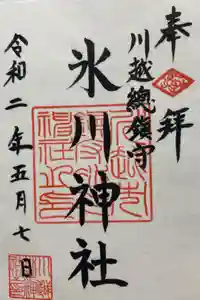 奉拝
川越總鎮守
氷川神社
令和二年五月七日